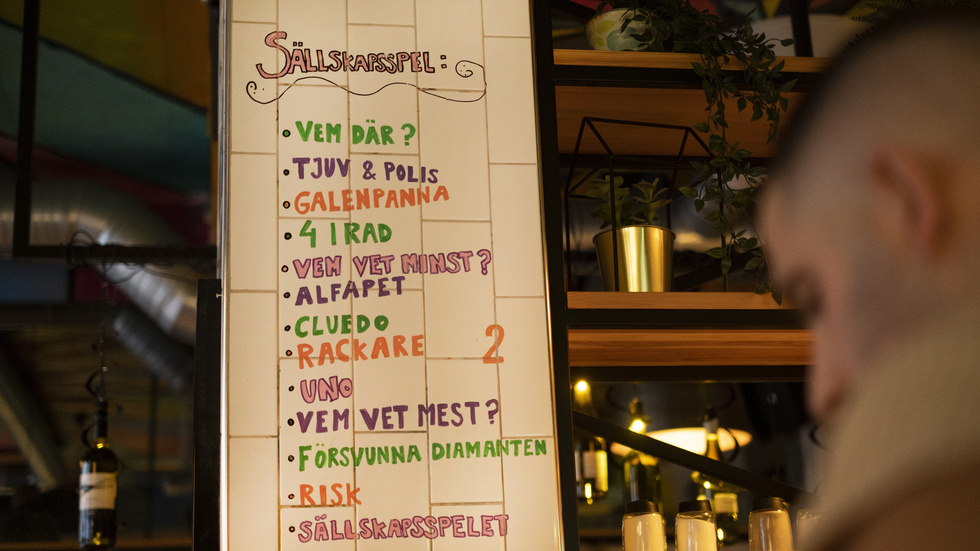 SÄLLSKAPSSPEL:
• VEM DÄR?
• TJUV & POLIS
• GALENPANNA
• 4 I RAD
• VEM VET MINST?
• ALFAPET
• CLUEDO
• RACKARE 2
• UNO
• VEM VET MEST?
• FÖRSVUNNA DIAMANTEN
• RISK
• SÄLLSKAPSSPELET